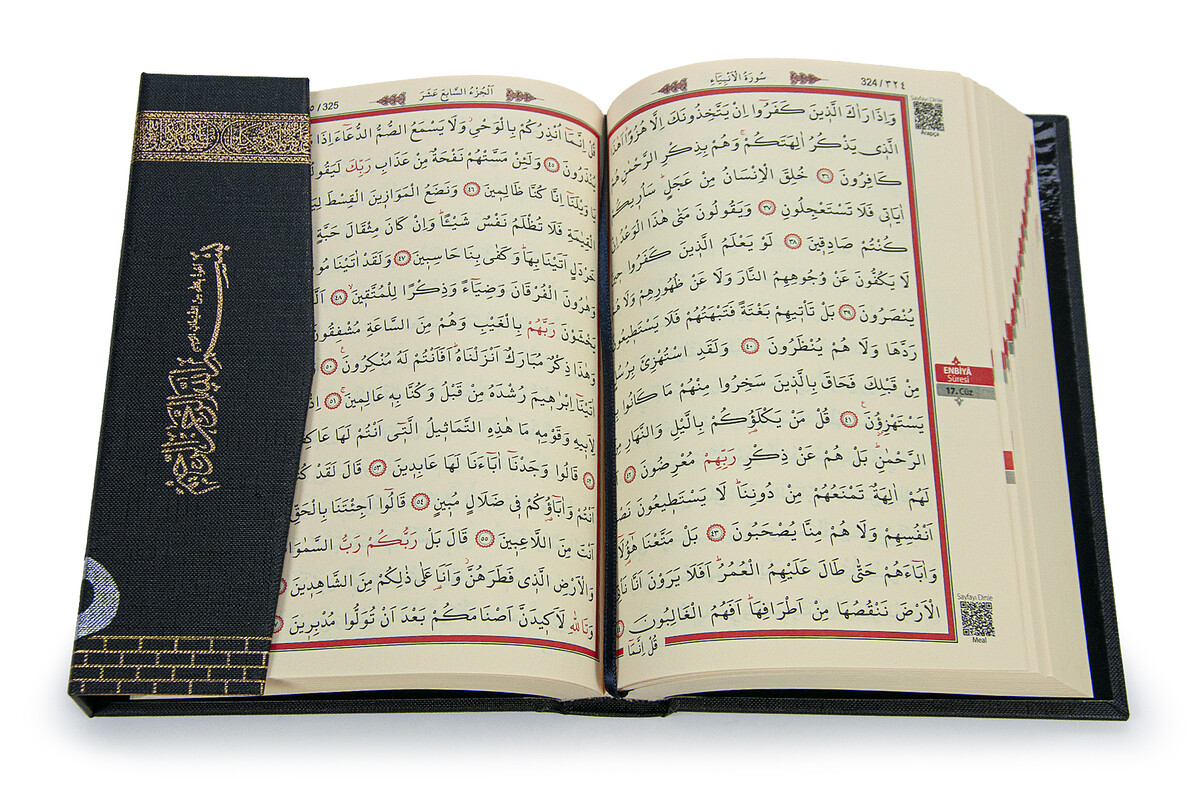 سُورَةُ الْاَنْبِيَٓاءِ
324 / ٣٢٤
وَاِذَا رَاٰكَ الَّذ۪ينَ كَفَرُٓوا اِنْ يَتَّخِذُونَكَ اِلَّا هُزُوًاۜ
الَّذ۪ي يَذْكُرُ اٰلِهَتَكُمْۚ وَهُمْ بِذِكْرِ الرَّحْمٰنِ
كَافِرُونَ ﴿٣٦﴾ خُلِقَ الْاِنْسَانُ مِنْ عَجَلٍۜ سَاُر۪يكُمْ
اٰيَات۪ي فَلَا تَسْتَعْجِلُونِ ﴿٣٧﴾ وَيَقُولُونَ مَتٰى هٰذَا الْوَعْدُ
كُنْتُمْ صَادِق۪ينَ ﴿٣٨﴾ لَوْ يَعْلَمُ الَّذ۪ينَ كَفَرُوا
لَا يَكُفُّونَ عَنْ وُجُوهِهِمُ النَّارَ وَلَا عَنْ ظُهُورِهِمْ وَلَا
يُنْصَرُونَ ﴿٣٩﴾ بَلْ تَأْت۪يهِمْ بَغْتَةً فَتَبْهَتُهُمْ فَلَا يَسْتَط۪يعُونَ
رَدَّهَا وَلَا هُمْ يُنْظَرُونَ ﴿٤٠﴾ وَلَقَدِ اسْتُهْزِئَ
مِنْ قَبْلِكَ فَحَاقَ بِالَّذ۪ينَ سَخِرُوا مِنْهُمْ مَا كَانُوا
يَسْتَهْزِؤُ۫نَ ﴿٤١﴾ قُلْ مَنْ يَكْلَؤُ۬كُمْ بِالَّيْلِ وَالنَّهَارِ
الرَّحْمٰنِۜ بَلْ هُمْ عَنْ ذِكْرِ رَبِّهِمْ مُعْرِضُونَ ﴿٤٢﴾
لَهُمْ اٰلِهَةٌ تَمْنَعُهُمْ مِنْ دُونِنَاۜ لَا يَسْتَط۪يعُونَ
اَنْفُسِهِمْ وَلَا هُمْ مِنَّا يُصْحَبُونَ ﴿٤٣﴾ بَلْ مَتَّعْنَا هٰٓؤُ۬لَٓاءِ
وَاٰبَٓاءَهُمْ حَتّٰى طَالَ عَلَيْهِمُ الْعُمُرُۜ اَفَلَا يَرَوْنَ اَنَّا
الْاَرْضَ نَنْقُصُهَا مِنْ اَطْرَافِهَاۜ اَفَهُمُ الْغَالِبُونَ
قُلْ اِنَّمَٓا
Sayfayı Dinle
Arapça
ENBİYÂ
Sûresi
17. Cüz
Sayfayı Dinle
Meal
اَلْجُزْءُ السَّابِعَ عَشَرَ
/ 325
قُلْ اِنَّمَٓا اُنْذِرُكُمْ بِالْوَحْيِۘ وَلَا يَسْمَعُ الصُّمُّ الدُّعَٓاءَ اِذَا
يُنْذَرُونَ ﴿٤٥﴾ وَلَئِنْ مَسَّتْهُمْ نَفْحَةٌ مِنْ عَذَابِ رَبِّكَ
يَا وَيْلَنَٓا اِنَّا كُنَّا ظَالِم۪ينَ ﴿٤٦﴾ وَنَضَعُ الْمَوَاز۪ينَ الْقِسْطَ
الْقِيٰمَةِ فَلَا تُظْلَمُ نَفْسٌ شَيْـًٔاۜ وَاِنْ كَانَ مِثْقَالَ حَبَّةٍ
خَرْدَلٍ اَتَيْنَا بِهَاۜ وَكَفٰى بِنَا حَاسِب۪ينَ ﴿٤٧﴾ وَلَقَدْ اٰتَيْنَا
وَهٰرُونَ الْفُرْقَانَ وَضِيَٓاءً وَذِكْرًا لِلْمُتَّق۪ينَۙ ﴿٤٨﴾
يَخْشَوْنَ رَبَّهُمْ بِالْغَيْبِ وَهُمْ مِنَ السَّاعَةِ مُشْفِقُونَ
وَهٰذَا ذِكْرٌ مُبَارَكٌ اَنْزَلْنَاهُۜ اَفَاَنْتُمْ لَهُ مُنْكِرُونَ۟ ﴿٥٠﴾
اٰتَيْنَٓا اِبْرٰه۪يمَ رُشْدَهُ مِنْ قَبْلُ وَكُنَّا بِه۪ عَالِم۪ينَۚ ﴿٥١﴾ اِذْ
لِاَب۪يهِ وَقَوْمِه۪ مَا هٰذِهِ التَّمَاث۪يلُ الَّت۪ٓي اَنْتُمْ لَهَا
﴿٥٢﴾ قَالُوا وَجَدْنَٓا اٰبَٓاءَنَا لَهَا عَابِد۪ينَ ﴿٥٣﴾ قَالَ لَقَدْ
اَنْتُمْ وَاٰبَٓاؤُ۬كُمْ ف۪ي ضَلَالٍ مُب۪ينٍ ﴿٥٤﴾ قَالُٓوا اَجِئْتَنَا بِالْحَقِّ
اَنْتَ مِنَ اللَّاعِب۪ينَ ﴿٥٥﴾ قَالَ بَلْ رَبُّكُمْ رَبُّ
وَالْاَرْضِ الَّذ۪ي فَطَرَهُنَّۘ وَاَنَا عَلٰى ذٰلِكُمْ مِنَ الشَّاهِد۪ينَ
وَتَاللّٰهِ لَاَك۪يدَنَّ اَصْنَامَكُمْ بَعْدَ اَنْ تُوَلُّوا مُدْبِر۪ينَ
بسم الله الرحمن الرحيم